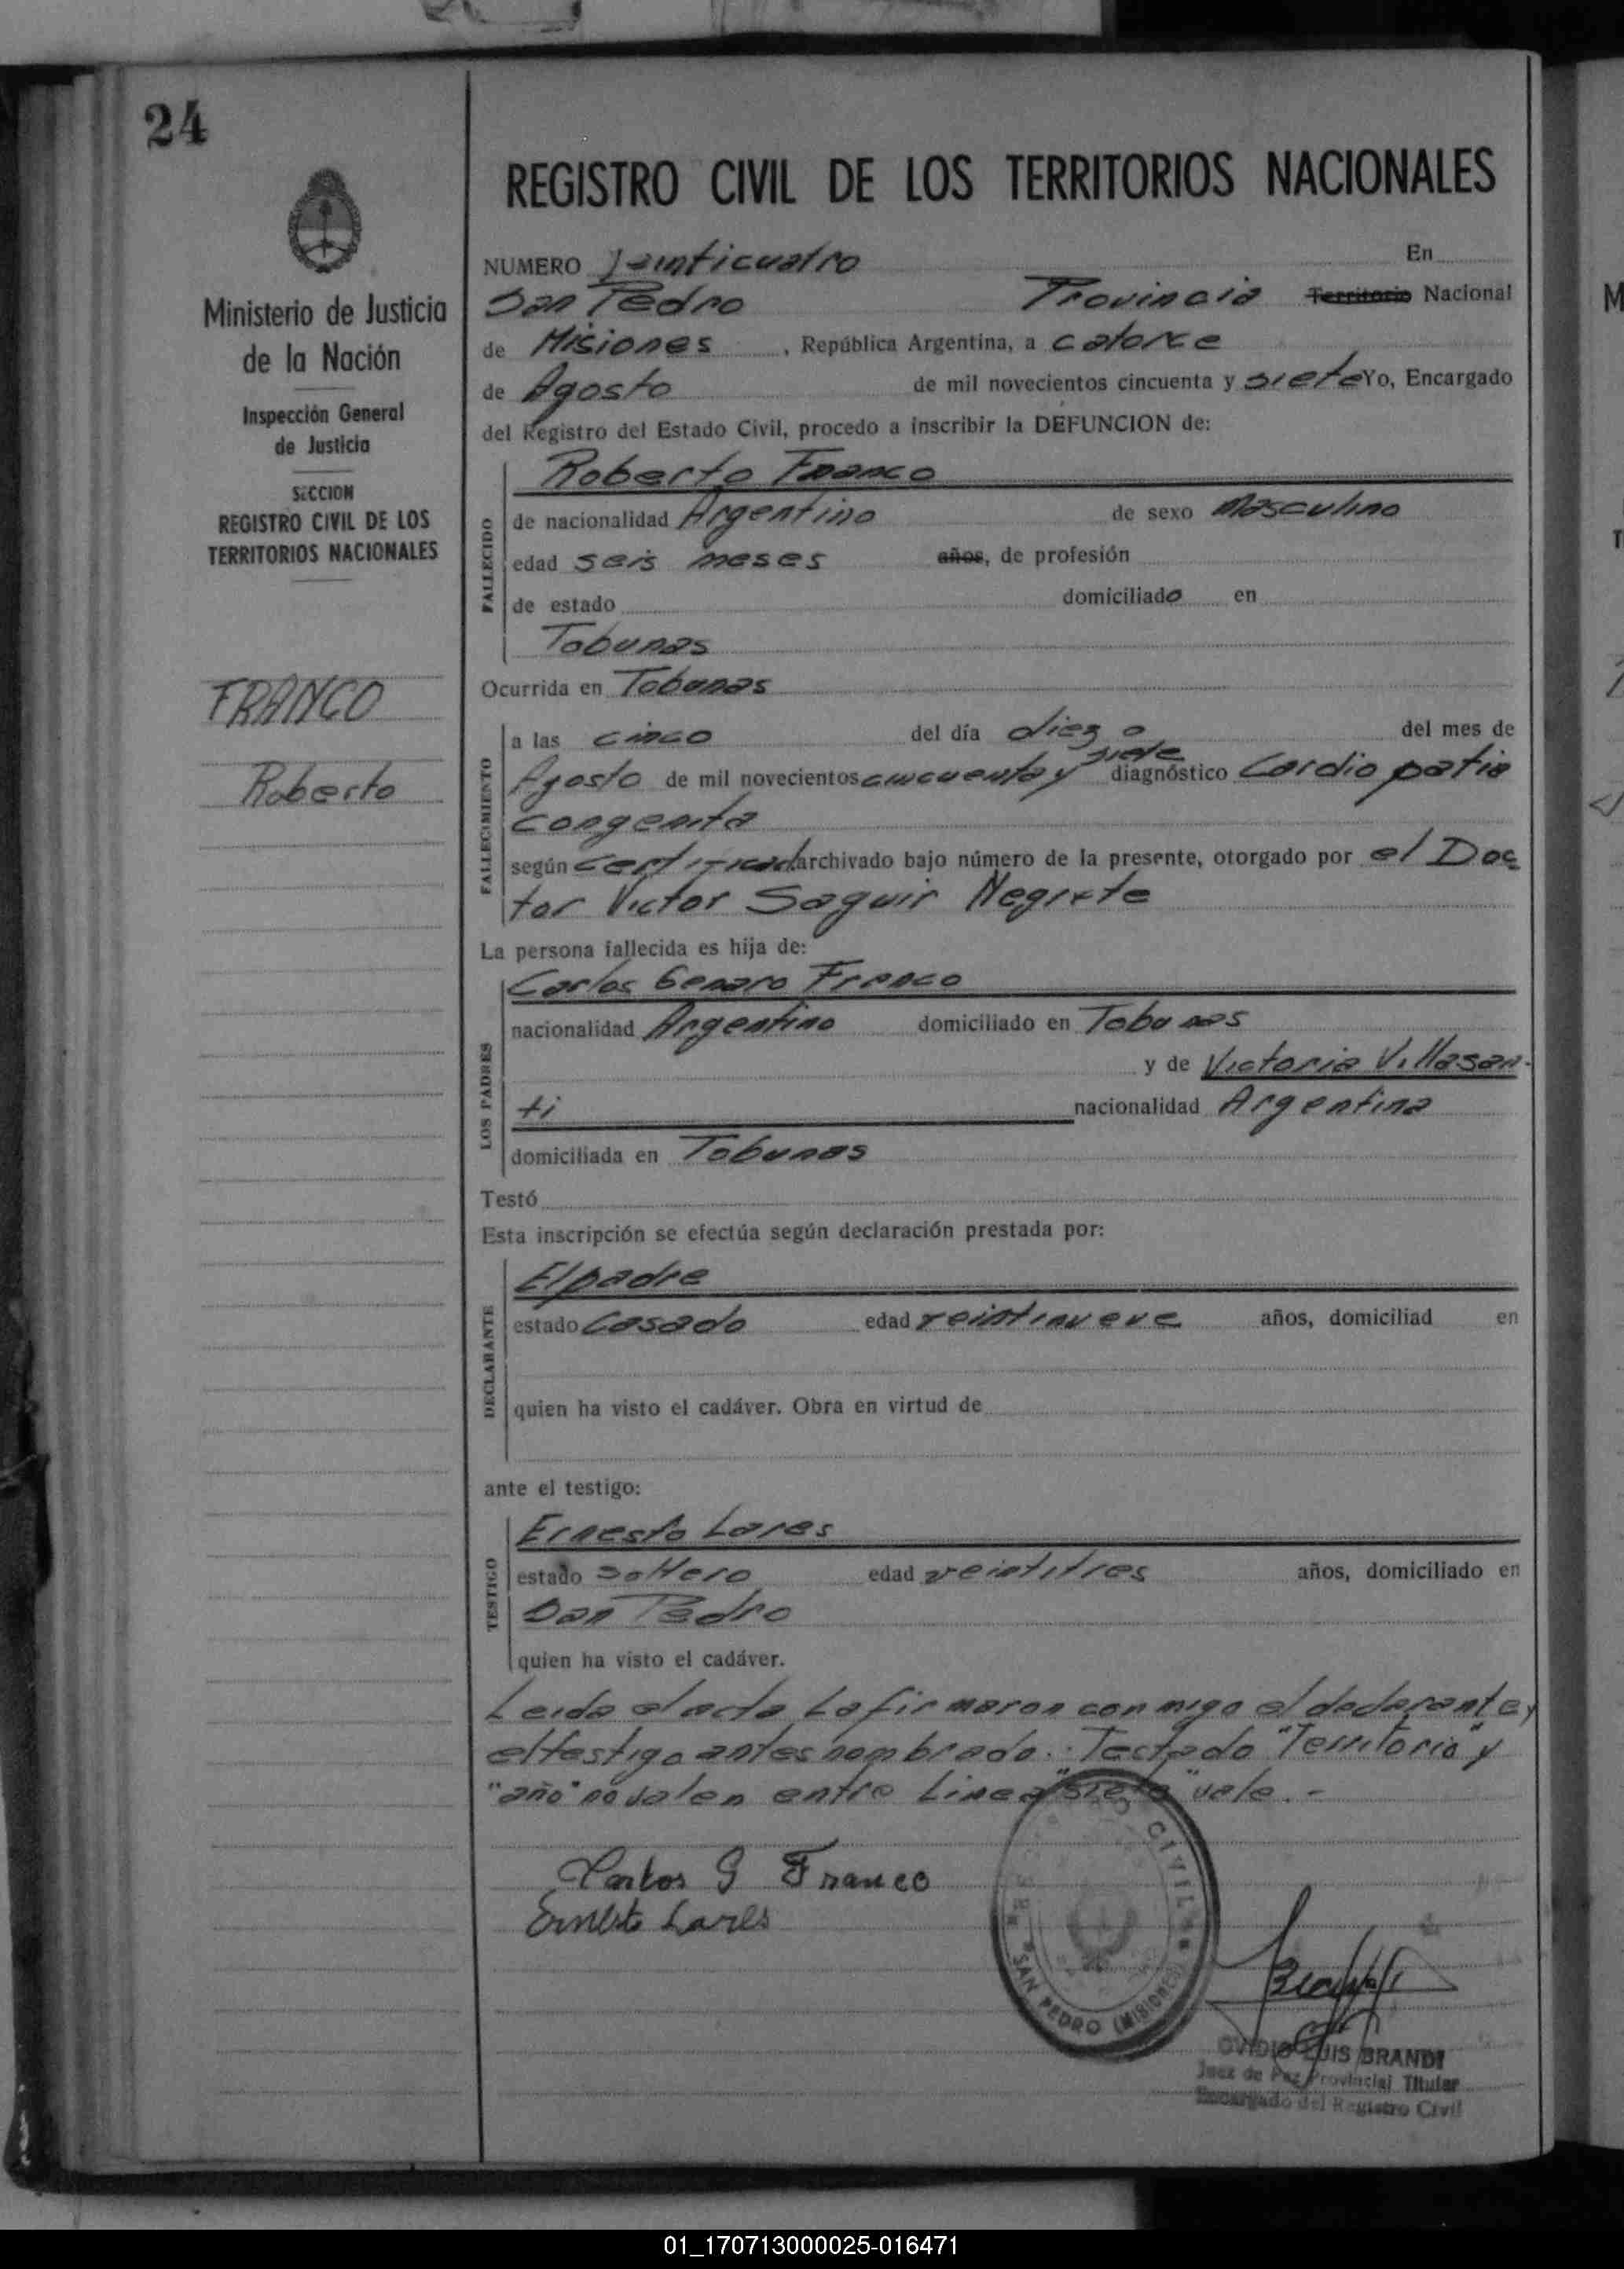 24
REGISTRO CIVIL DE LOS TERRITORIOS NACIONALES
Ministerio de Justicia
de la Nación
Inspección General
de Justicia
SECCION
REGISTRO CIVIL DE LOS
TERRITORIOS NACIONALES
FRANCO
Roberto
NUMERO Veinticuatro En
San Pedro Provincia Territorio Nacional
de Misiones, República Argentina, a catorce
de Agosto de mil novecientos cincuenta y siete Yo, Encargado
del Registro del Estado Civil, procedo a inscribir la DEFUNCION de:
FALLECIDO
Roberto Franco
de nacionalidad Argentino de sexo Masculino
edad seis meses años, de profesión
de estado domiciliado en
Tobunas
Ocurrida en Tobunas
FALLECIMIENTO
a las cinco del día diez del mes de
siete
Agosto de mil novecientos cincuenta y diagnóstico Cardio patia
congenita
según certificad archivado bajo número de la presente, otorgado por el Doc
tor Victor Saguir Negrete
La persona fallecida es hija de:
LOS PADRES
Carlos Genaro Franco
nacionalidad Argentino domiciliado en Tobunas
y de Victoria Villasan-
ti nacionalidad Argentina
domiciliada en Tobunas
Testó
Esta inscripción se efectúa según declaración prestada por:
DECLARANTE
El padre
estado Casado edad veintinueve años, domiciliad en
quien ha visto el cadáver. Obra en virtud de
ante el testigo:
TESTIGO
Ernesto Lares
estado soltero edad veintitres años, domiciliado en
San Pedro
quien ha visto el cadáver.
Leida el acta la firmaron conmigo el declarante y
el testigo antes nombrado.. Testado "Territorio" y
"año" no valen entre Linea "siete" vale.-
Carlos G Franco
Ernesto Lares
CIVIL
SAN PEDRO (MISIONES)
OVIDIO LUIS BRANDI
Juez de Paz Provincial Titular
Encargado del Registro Civil
01_170713000025-016471